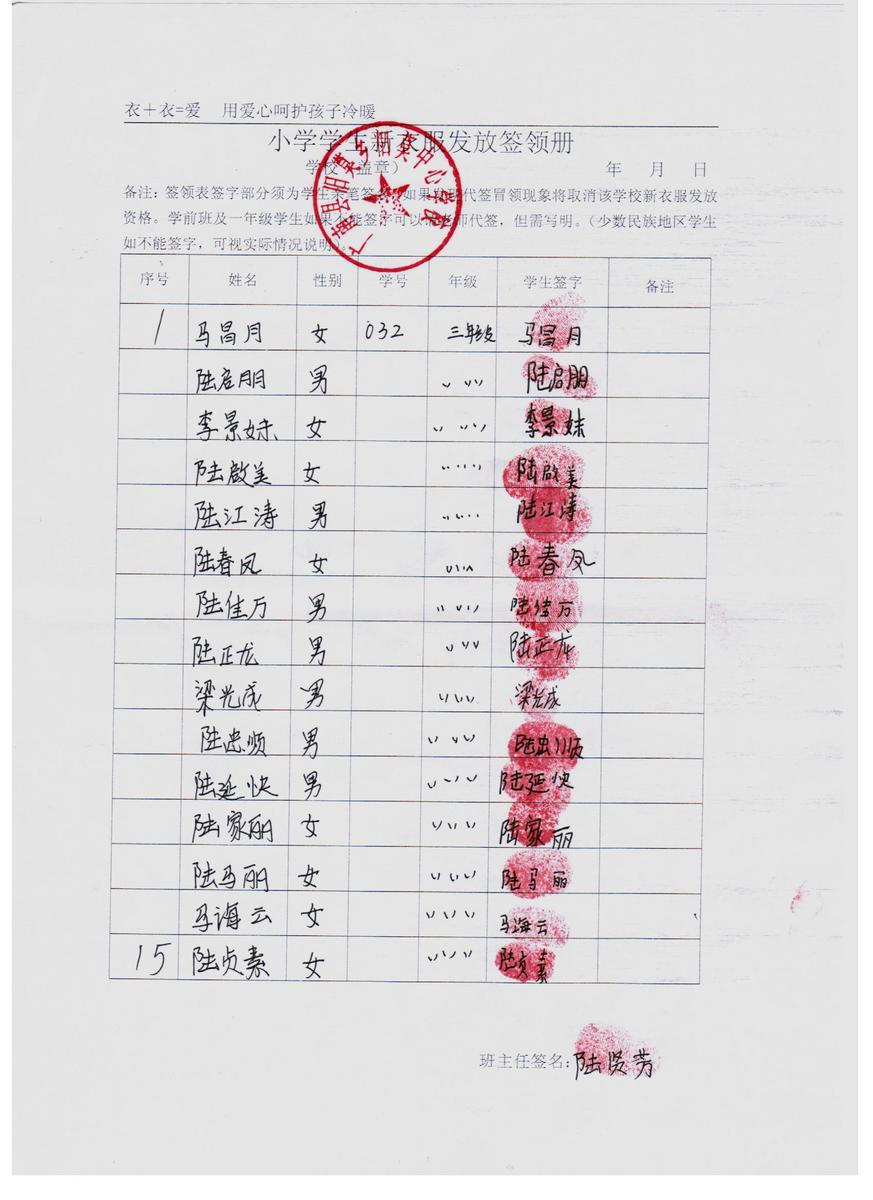 衣＋衣=爱 用爱心呵护孩子冷暖
小学学生新衣服发放签领册
学校（盖章） 年 月 日
备注：签领表签字部分须为学生亲笔签名，如果发现代签冒领现象将取消该学校新衣服发放
资格。学前班及一年级学生如果不能签字可以请老师代签，但需写明。（少数民族地区学生
如不能签字，可视实际情况说明）。
序号 姓名 性别 学号 年级 学生签字 备注
1 马昌月 女 032 三年级 马昌月
陆启朋 男 〃 〃 陆启朋
李景妹 女 〃 〃 李景妹
陆啟美 女 〃 〃 陆啟美
陆江涛 男 〃 〃 陆江涛
陆春凤 女 〃 〃 陆春凤
陆佳万 男 〃 〃 陆佳万
陆正龙 男 〃 〃 陆正龙
梁光成 男 〃 〃 梁光成
陆忠顺 男 〃 〃 陆忠顺
陆延快 男 〃 〃 陆延快
陆家丽 女 〃 〃 陆家丽
陆马丽 女 〃 〃 陆马丽
马海云 女 〃 〃 马海云
15 陆贞素 女 〃 〃 陆贞素
班主任签名：陆贤芳